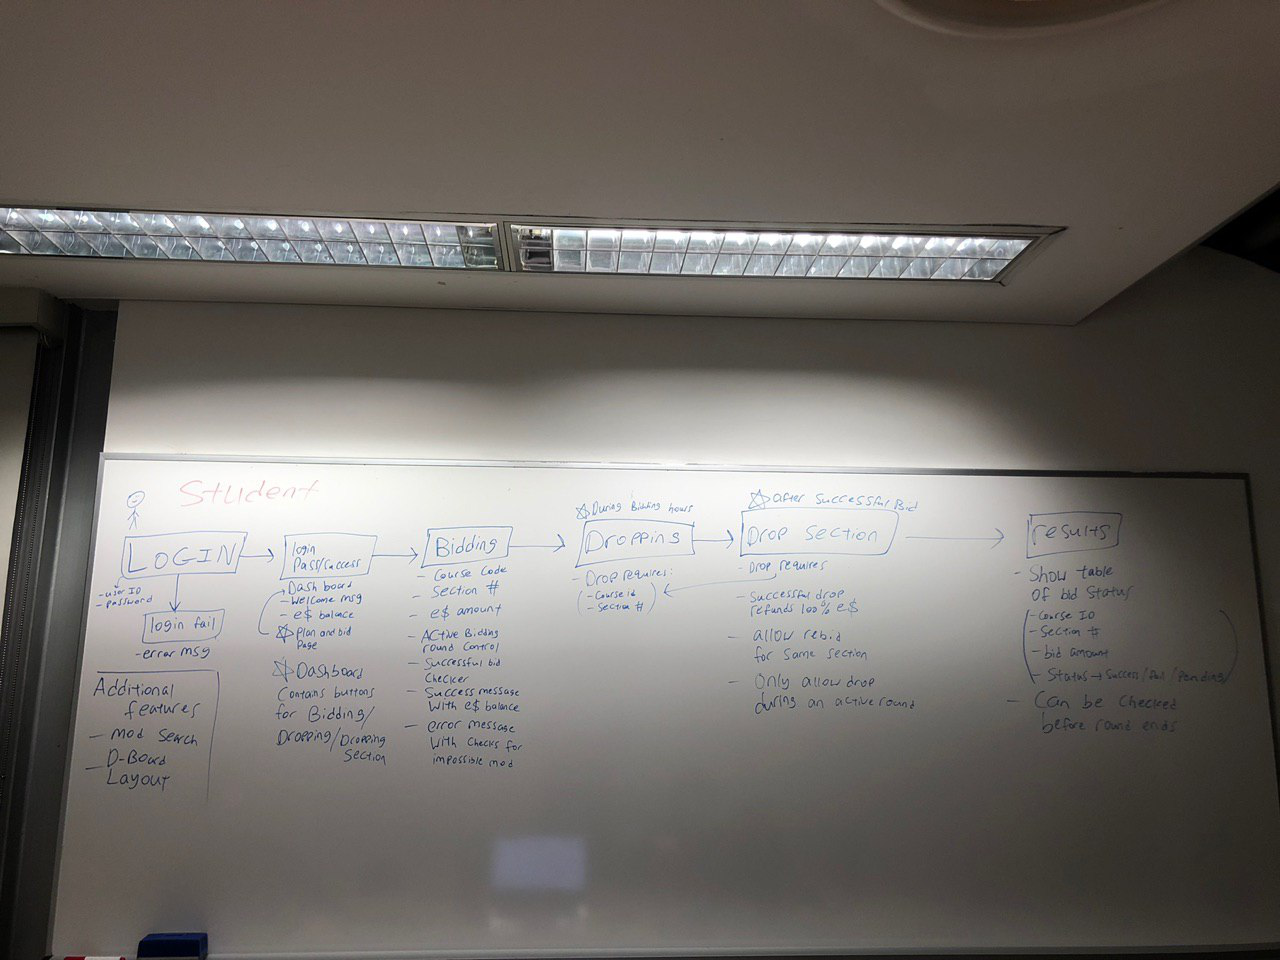 Student
LOGIN
- user ID
- password
login fail
- error msg
Additional
features
- Mod Search
- D-Board
Layout
login
Pass/success
Dash board
- Welcome msg
- e$ balance
☆ Plan and bid
Page
☆ Dashboard
Contains buttons
for Bidding/
Dropping/Dropping
Section
Bidding
- Course Code
- Section #
- e$ amount
- Active Bidding
round Control
- Successful bid
Checker
- Success message
With e$ balance
- error message
With checks for
impossible mod
☆ During Bidding hours
Dropping
- Drop requires:
- Course id
- Section #
☆ after Successful Bid
Drop Section
- Drop requires
- Successful drop
refunds 100% e$
- allow rebid
for same section
- Only allow drop
during an active round
results
- Show table
Of bid Status
- Course ID
- Section #
- bid amount
- Status → Success/fail/Pending
- Can be Checked
before round ends